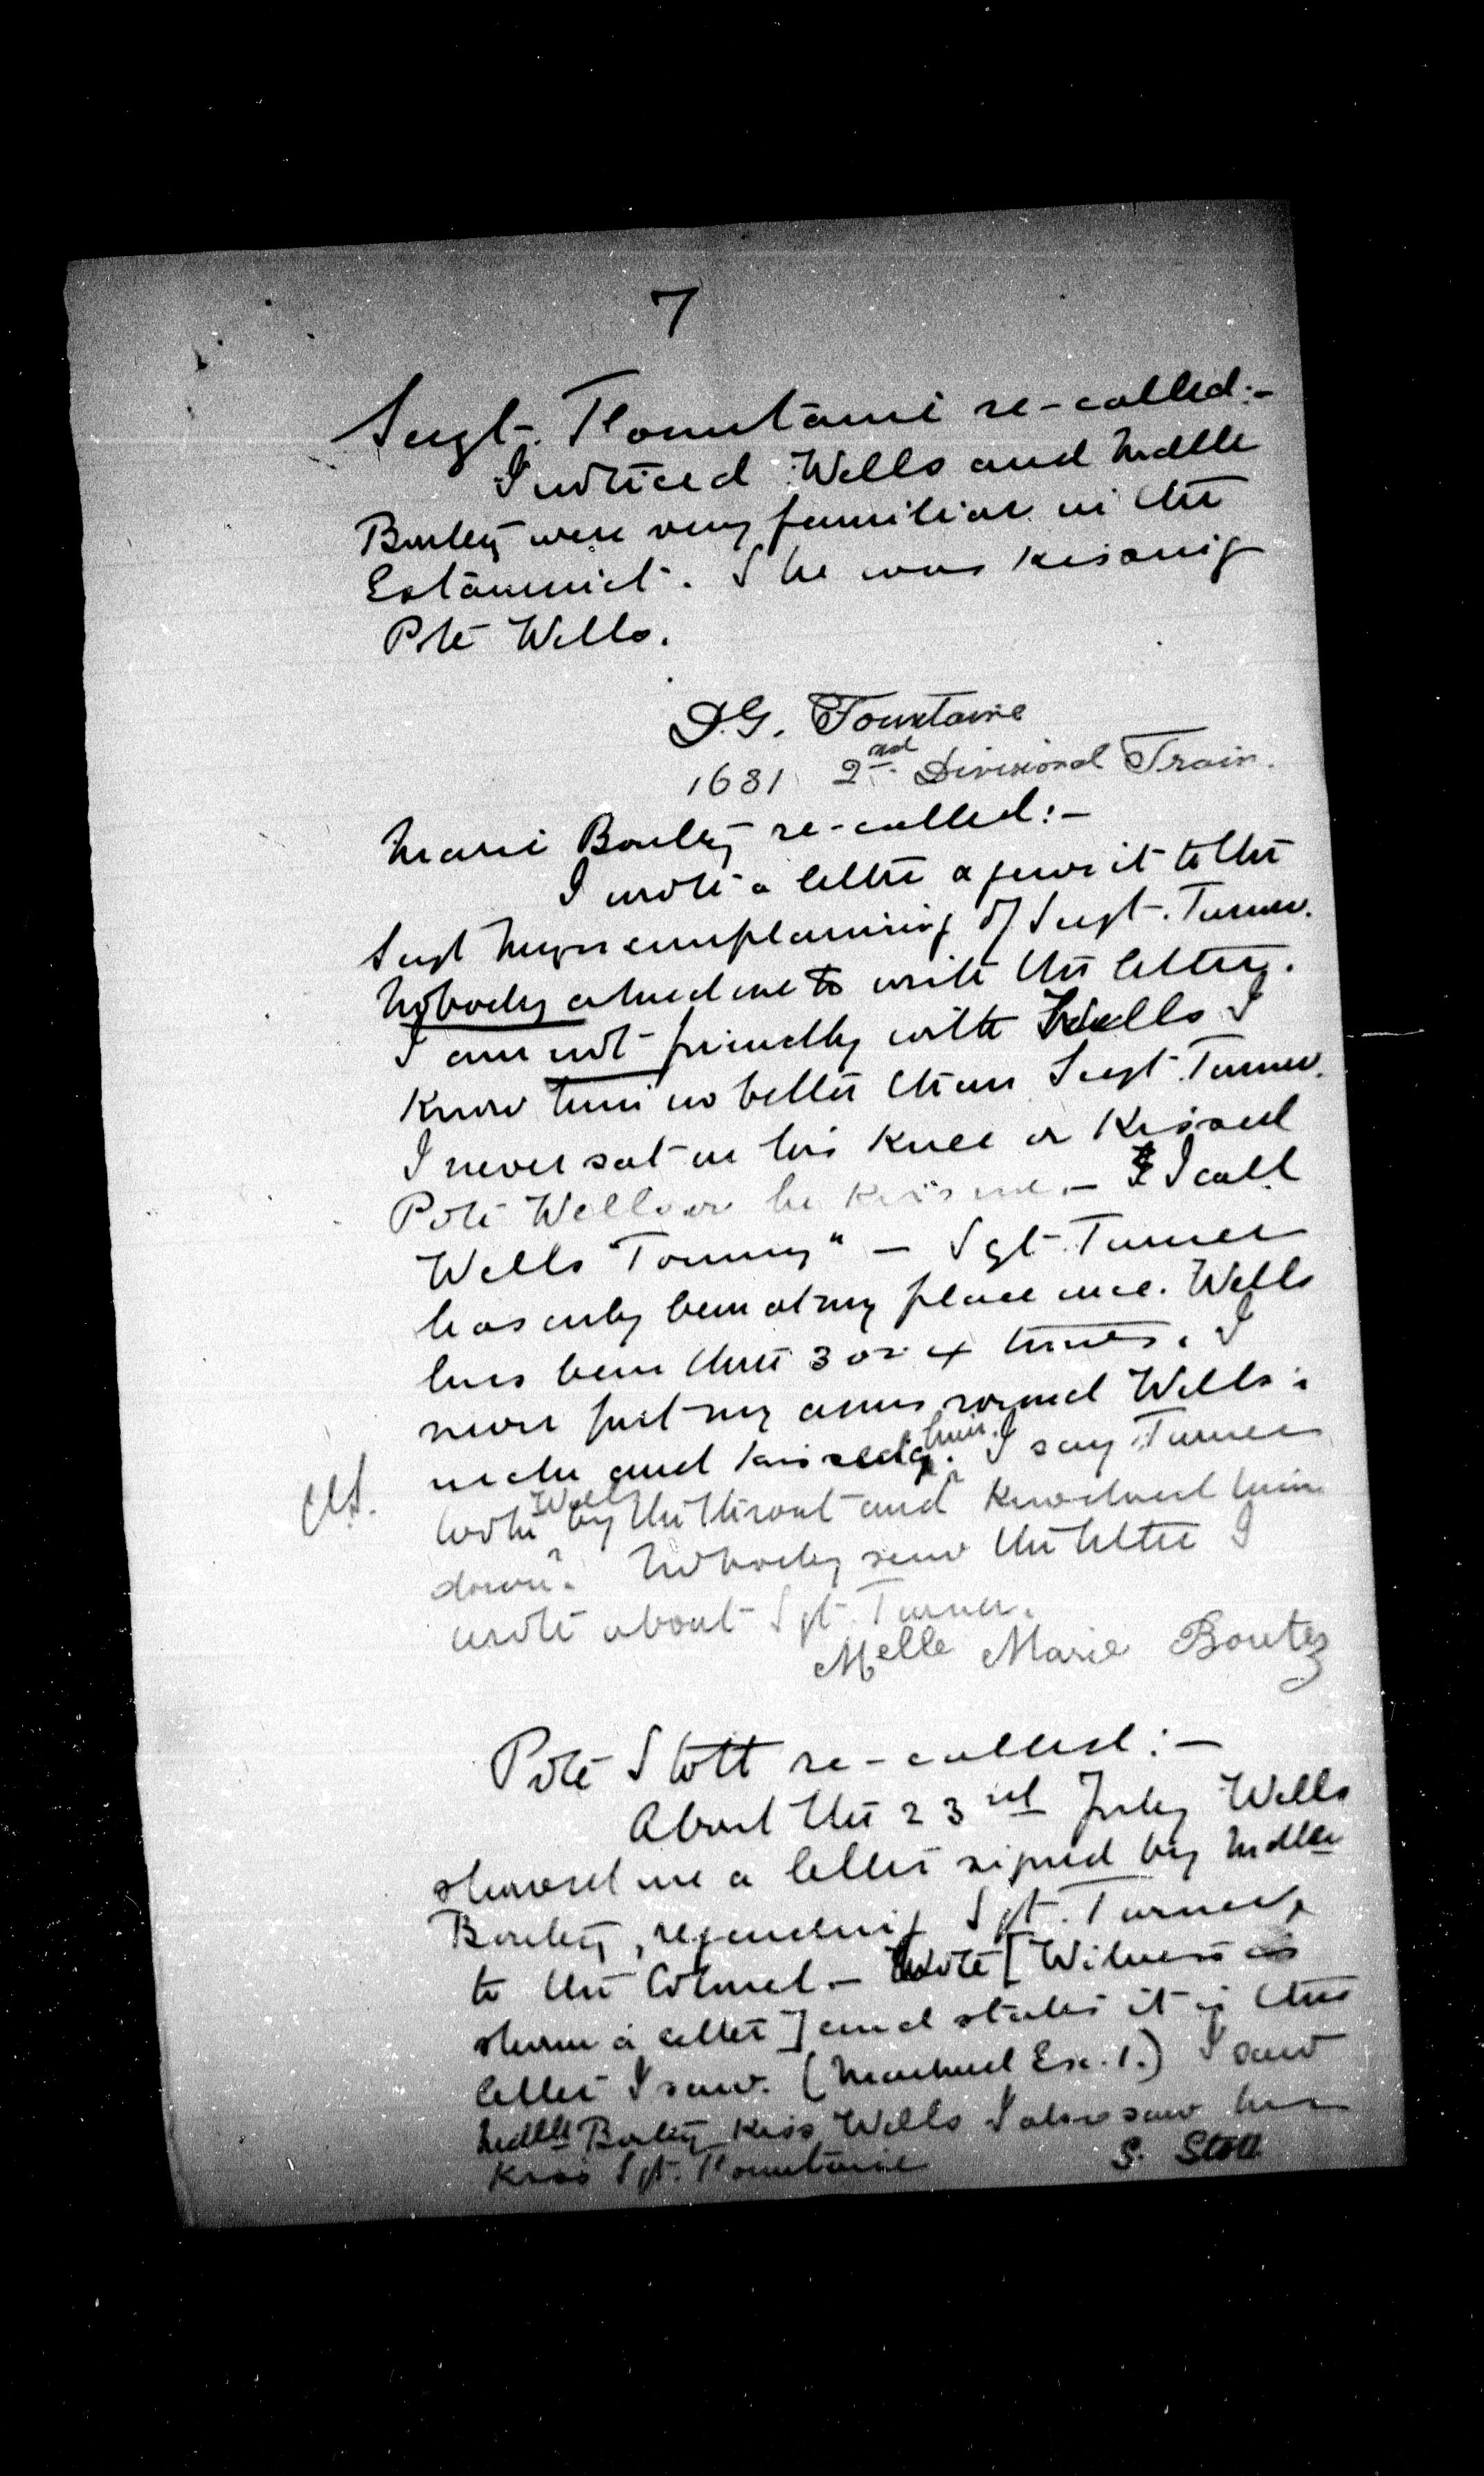 7
Sergt. Fountaine re-called:-
I noticed Wells and Mdlle
Boutez were very familiar in the
Estaminet. She was kissing
Pte Wells.
D.G. Fountaine
1681 2nd Divisional Train.
Marie Boutez re-called:-
I wrote a letter & gave it to the
Sergt Major complaining of Sergt. Turner.
Nobody asked me to write the letter.
I am not friendly with Wells I
know him no better than Sergt. Turner.
I never sat on his knee or kissed
Pte Wells or he kiss me. - I call
Wells "Tommy" - Sgt. Turner
has only been at my place once. Wells
has been there 3 or 4 times. I
never put my arms round Wells'
neck and kissed him. I say Turner
took Wells by the throat and knocked him
down. Nobody saw the letter I
wrote about Sgt. Turner.
Melle Marie Boutez
Pte Stott re-called:-
About the 23rd July Wells
showed me a letter signed by Mdlle
Boutez, regarding Sgt. Turner,
to the Colonel - Note [Witness is
shown a letter] and states it is the
letter I saw. (Marked Ex. 1.) I saw
Mdlle Boutez kiss Wells I also saw her
kiss Sgt. Fountaine S. Stott